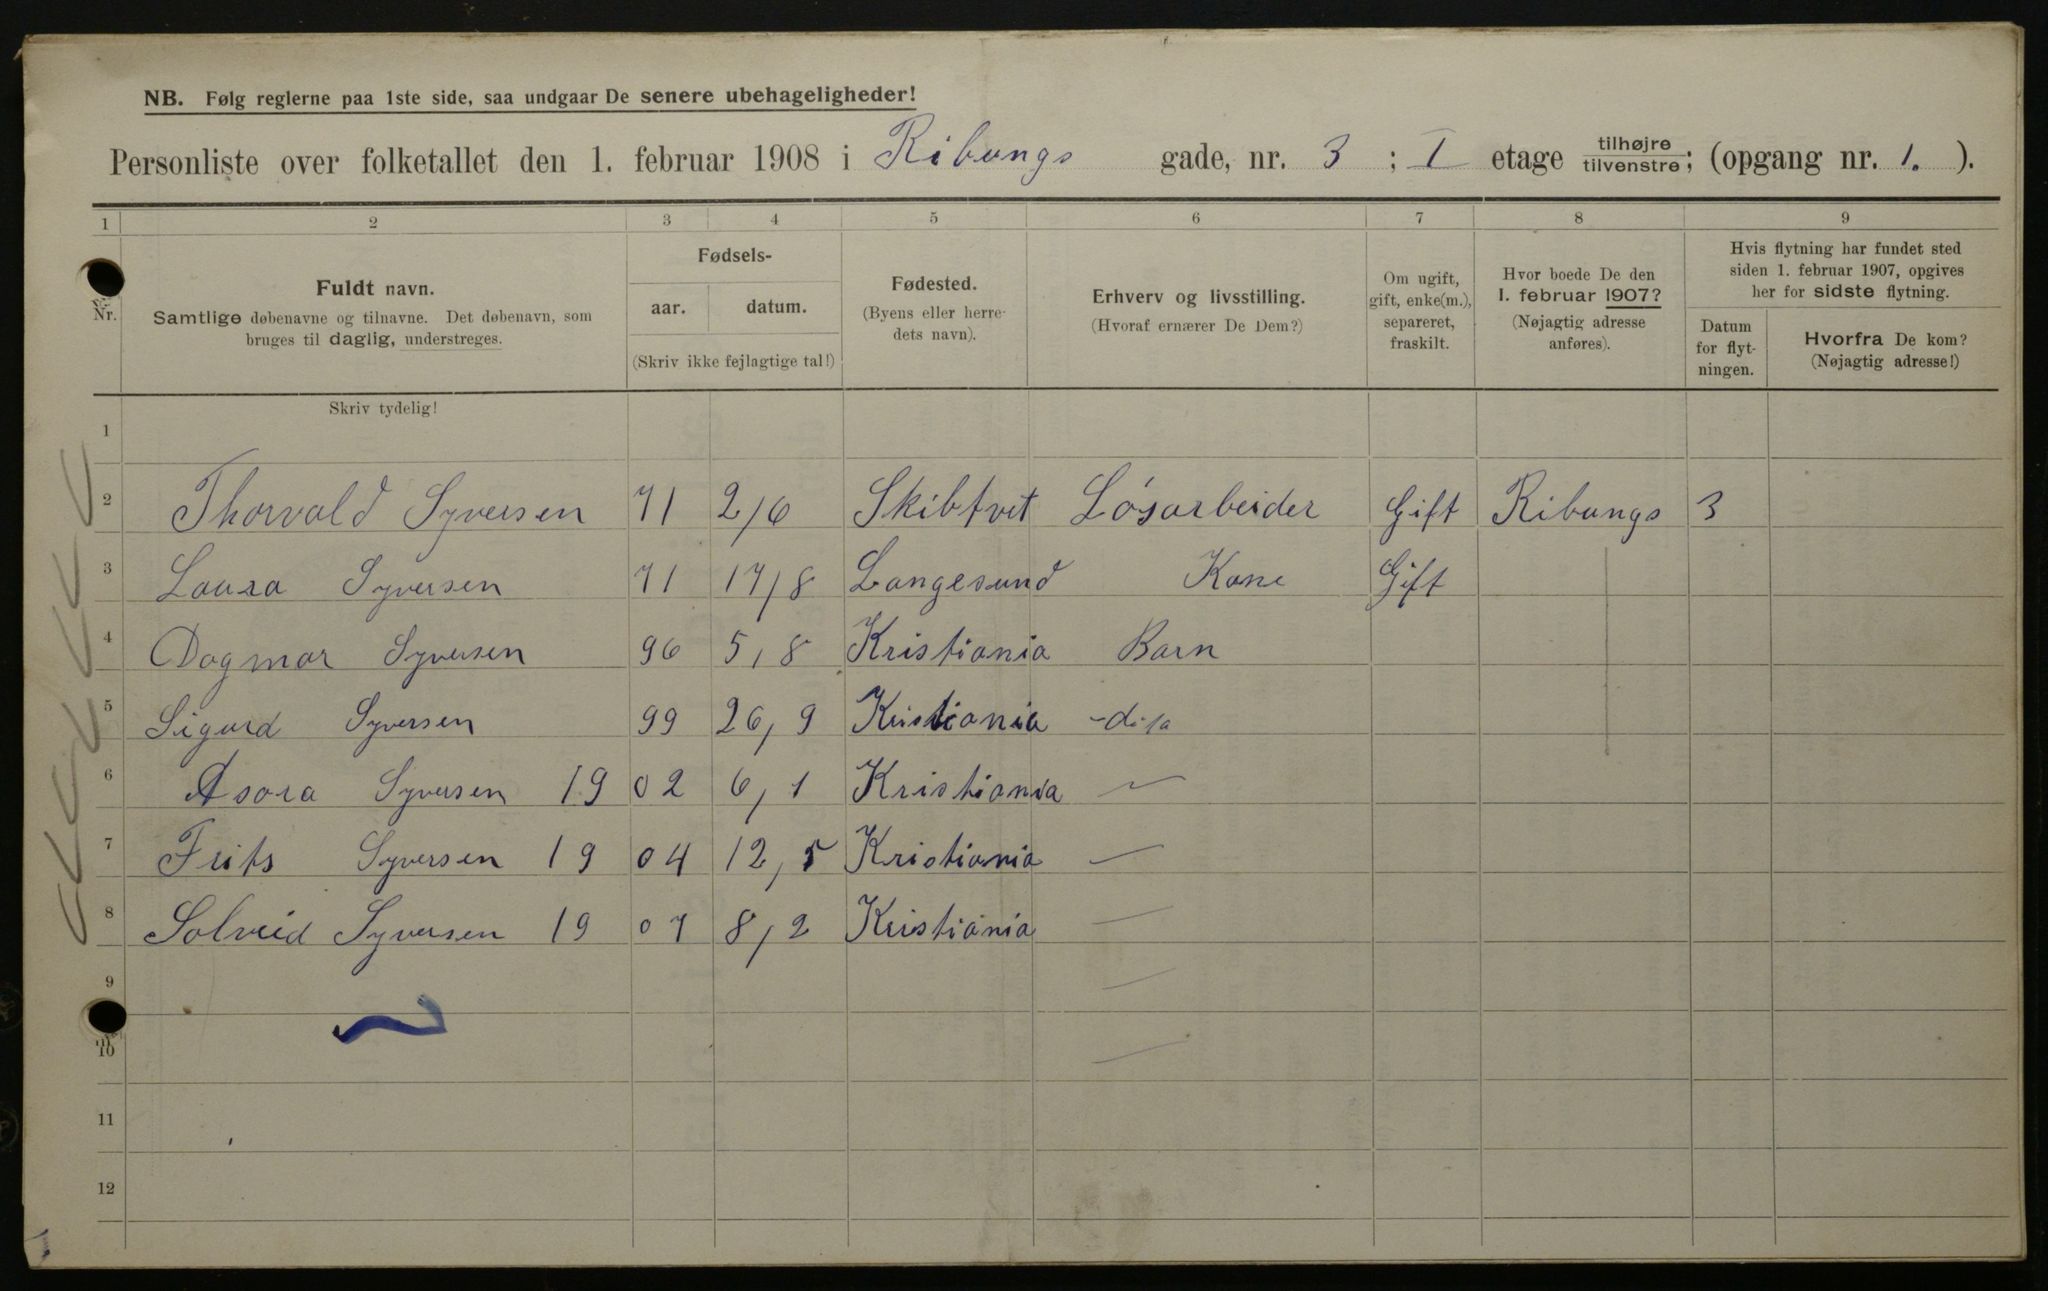 NB. Følg reglerne paa 1ste side, saa undgaar De senere ubehageligheder!
Personliste over folketallet den 1. februar 1908 i Ribungs gade, nr. 3 ; I etage tilhøjre tilvenstre; (opgang nr. 1. ).
1 2 3 4 5 6 7 8 9
Nr.
Fuldt navn.
Samtlige døbenavne og tilnavne. Det døbenavn, som
bruges til daglig, understreges.
Fødsels-
aar. datum.
(Skriv ikke fejlagtige tal!)
Fødested.
(Byens eller herre-
dets navn).
Erhverv og livsstilling.
(Hvoraf ernærer De Dem?)
Om ugift,
gift, enke(m.),
separeret,
fraskilt.
Hvor boede De den
1. februar 1907?
(Nøjagtig adresse
anføres).
Hvis flytning har fundet sted
siden 1. februar 1907, opgives
her for sidste flytning.
Datum
for flyt-
ningen.
Hvorfra De kom?
(Nøjagtig adresse!)
Skriv tydelig!
1
2 Thorvald Syversen 71 2/6 Skibtvet Løsarbeider Gift Ribungs 3
3 Laura Syversen 71 17/8 Langesund Kone Gift
4 Dagmar Syversen 96 5,8 Kristiania Barn
5 Sigurd Syversen 99 26,9 Kristiania -dito
6 Asora Syversen 19 02 6,1 Kristiania —
7 Frits Syversen 19 04 12,5 Kristiania —
8 Solveid Syversen 19 07 8,2 Kristiania —
9 —
10 —
11
12